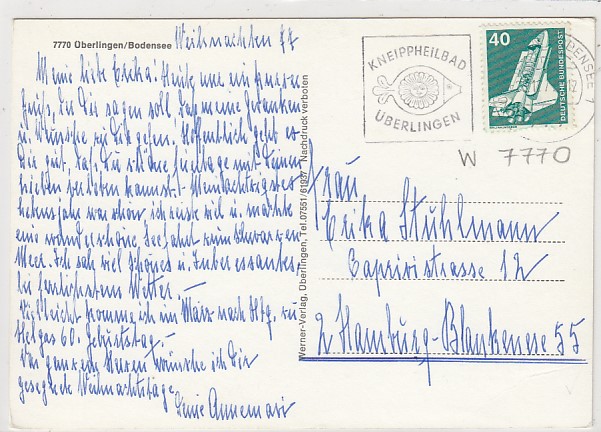 7770 Überlingen/Bodensee
Weihnachten 77
Meine liebe Erika! Heute nur ein kurzer
Gruß, der Dir sagen soll, daß meine Gedanken
u. Wünsche zu Dir gehen. Hoffentlich geht es
Dir gut, daß Du schöne Festtage mit Deinen
Lieben verleben kannst!
war schön, ich reiste viel u. machte
eine wunderschöne Seefahrt zum Schwarzen
Meer. Ich sah viel Schönes u. Interessantes,
bei herrlichstem Wetter. —
Vielleicht komme ich im März nach Hbg. zu
Helgas 60. Geburtstag. —
Von ganzem Herzen wünsche ich Dir
gesegnete Weihnachtstage
Deine Annemarie
Werner-Verlag, Überlingen, Tel. 07551/61937 Nachdruck verboten
KNEIPPHEILBAD
ÜBERLINGEN
40
DEUTSCHE BUNDESPOST
W 7770
Frau
Erika Stuhlmann
Caprivistrasse 12
2 Hamburg-Blankenese 55